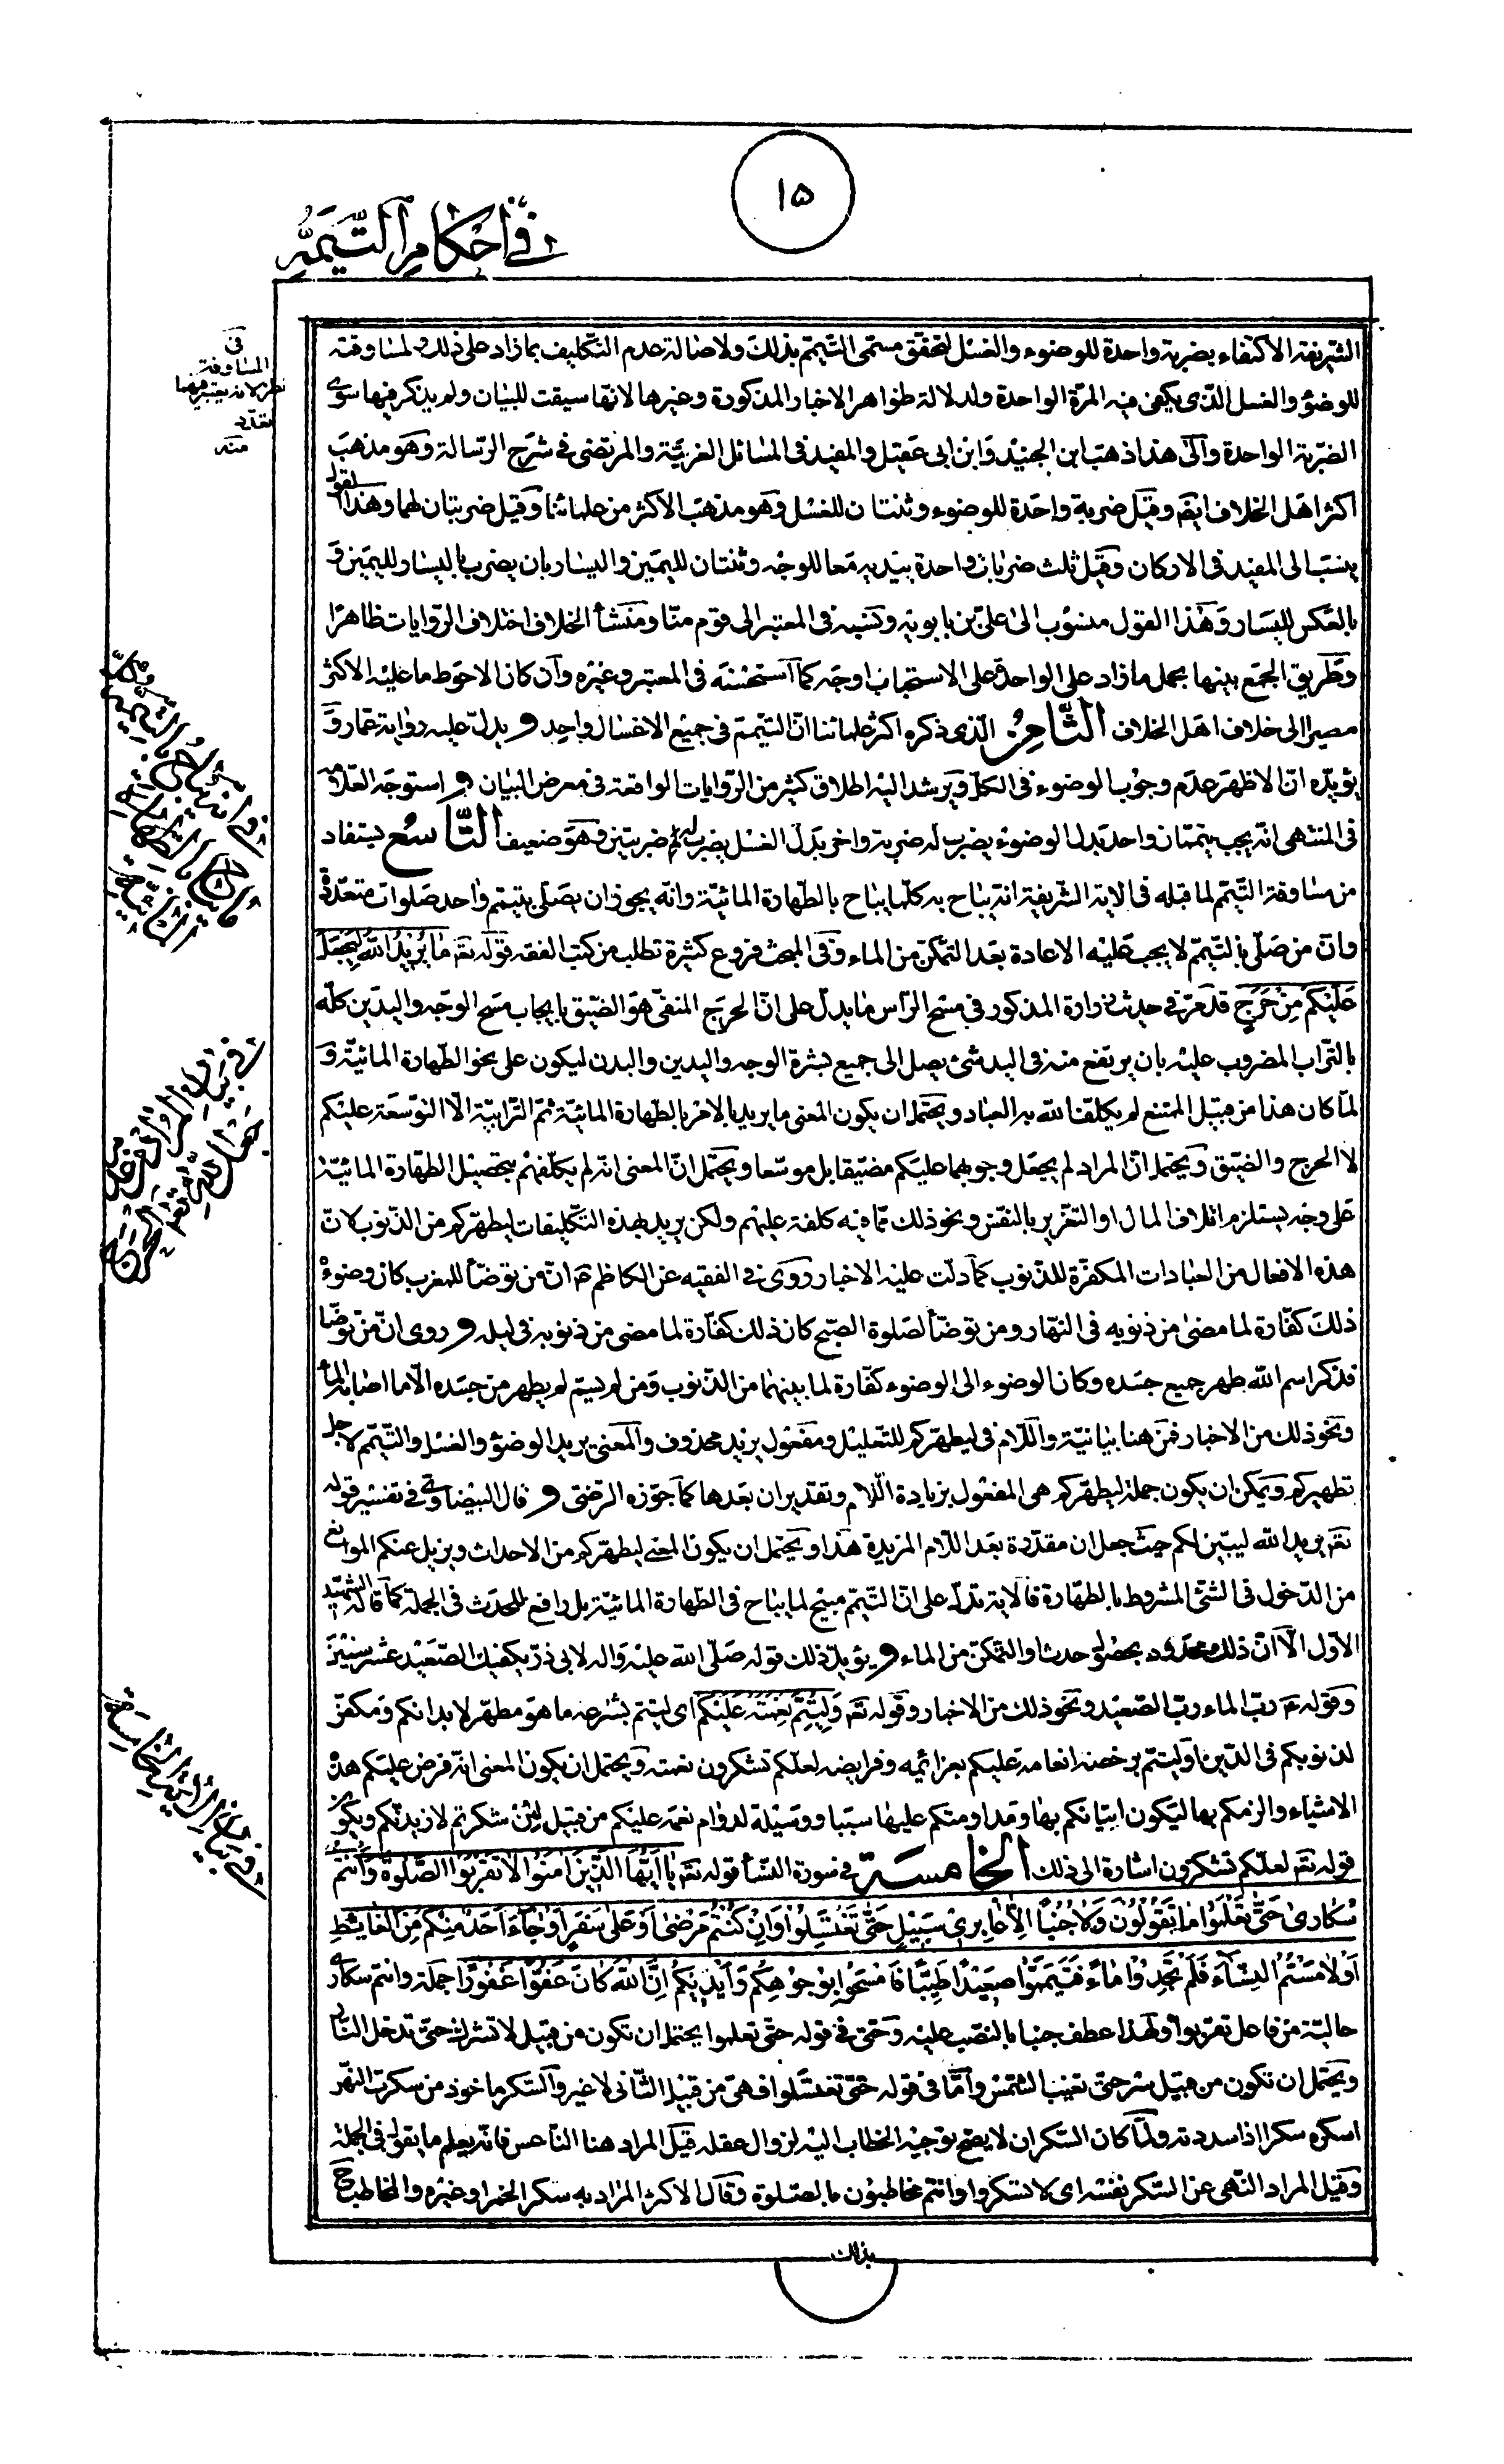 ١٥
في احكام التيمم
الشريفة الاكتفاء بضربة واحدة للوضوء والغسل لتحقق مسمى التيمم بذلك ولاصالة عدم التكليف بما زاد على ذلك ولمساوقته
للوضوء والغسل الذى يكفى فيه المرة الواحدة ولدلالة ظواهر الاخبار المذكورة وغيرها لانها سيقت للبيان ولم يذكر فيها سوى
الضربة الواحدة والى هذا ذهب ابن الجنيد وابن ابى عقيل والمفيد فى المسائل الغرية والمرتضى فى شرح الرسالة وهو مذهب
اكثر اهل الخلاف ايضا وقيل ضربة واحدة للوضوء وثنتان للغسل وهو مذهب الاكثر من علمائنا وقيل ضربتان لهما وهذا القول
ينسب الى المفيد فى الاركان وقيل ثلث ضربات واحدة بيديه معا للوجه وثنتان لليمين واليسار بان يضرب باليسار لليمين و
بالعكس لليسار وهذا القول منسوب الى على بن بابويه ونسبه فى المعتبر الى قوم منا ومنشأ الخلاف اختلاف الروايات ظاهرا
وطريق الجمع بينها بحمل ما زاد على الواحدة على الاستحباب اوجه كما استحسنه فى المعتبر وغيره وان كان الاحوط ما عليه الاكثر
مصيرا الى خلاف اهل الخلاف الثامن الذى ذكره اكثر علمائنا ان التيمم فى جميع الاغسال واحد ويدل عليه رواية عمار و
يؤيده ان الاظهر عدم وجوب الوضوء فى الكل ويرشد اليه اطلاق كثير من الروايات الواقعة فى معرض البيان واستوجه العلامه
فى المنتهى انه يجب تيممان واحد بدل الوضوء يضرب له ضربة واخر بدل الغسل يضرب له ضربتين وهو ضعيف التاسع يستفاد
من مساوقة التيمم لما قبله فى الاية الشريفة انه يباح به كلما يباح بالطهارة المائية وانه يجوز ان يصلى بتيمم واحد صلوات متعددة
وان من صلى بالتيمم لا يجب عليه الاعادة بعد التمكن من الماء وفى المبحث فروع كثيرة تطلب من كتب الفقه قوله تع ما يريد الله ليجعل
عليكم من حرج قد مر فى حديث زرارة المذكور فى مسح الراس ما يدل على ان الحرج المنفى هو الضيق بايجاب مسح الوجه واليدين كله
بالتراب المضروب عليه بان يرتفع منه فى اليد شئ يصل الى جميع بشرة الوجه واليدين والبدن ليكون على نحو الطهارة المائية و
لما كان هذا من قبيل الممتنع لم يكلفنا الله به العباد ويحتمل ان يكون المعنى ما يريد بالامر بالطهارة المائية ثم الترابية الا التوسعة عليكم
لا الحرج والضيق ويحتمل ان المراد لم يجعل وجوبهما عليكم مضيقا بل موسعا ويحتمل ان المعنى انه لم يكلفهم بتحصيل الطهارة المائية
على وجه يستلزم اتلاف المال او التغرير بالنفس ونحو ذلك مما فيه كلفة عليهم ولكن يريد بهذه التكليفات ليطهركم من الذنوب لان
هذه الافعال من العبادات المكفرة للذنوب كما دلت عليه الاخبار روى فى الفقيه عن الكاظم ع ان من توضأ للمغرب كان وضوءه
ذلك كفارة لما مضى من ذنوبه فى النهار ومن توضأ لصلوة الصبح كان ذلك كفارة لما مضى من ذنوبه فى ليله وروى ان من توضأ
فذكر اسم الله طهر جميع جسده وكان الوضوء الى الوضوء كفارة لما بينهما من الذنوب ومن لم يسم لم يطهر من جسده الا ما اصابه الماء
ونحو ذلك من الاخبار فمن هنا بيانية واللام فى ليطهركم للتعليل ومفعول يريد محذوف والمعنى يريد الوضوء والغسل والتيمم لاجل
تطهيركم ويمكن ان يكون جملة ليطهركم هى المفعول بزيادة اللام وتقدير ان بعدها كما جوزه الرضى وقال البيضاوى فى تفسير قوله
تع يريد الله ليبين لكم حيث جعل ان مقدرة بعد اللام المزيدة هذا ويحتمل ان يكون المعنى ليطهركم من الاحداث ويزيل عنكم الموانع
من الدخول فى الشئ المشروط بالطهارة فالاية تدل على ان التيمم مبيح لما يباح فى الطهارة المائية بل رافع للحدث فى الجملة كما قاله الشهيد
الاول الا ان ذلك محدود بحصول حدث او التمكن من الماء ويؤيد ذلك قوله صلى الله عليه واله لابى ذر يكفيك الصعيد عشر سنين
وقوله ع رب الماء رب الصعيد ونحو ذلك من الاخبار وقوله تع وليتم نعمته عليكم اى ليتم بشرعه ما هو مطهر لابدانكم ومكفر
لذنوبكم فى الدين او ليتم برخصه انعامه عليكم بعزائمه وفرايضه لعلكم تشكرون نعمته ويحتمل ان يكون المعنى انه فرض عليكم هذه
الاشياء والزمكم بها ليكون اتيانكم بها ومداومتكم عليها سببا ووسيلة لدوام نعمه عليكم من قبيل لئن شكرتم لازيدنكم ويكون
قوله تع لعلكم تشكرون اشارة الى ذلك الخامسة فى سورة النسأ قوله تع يا ايها الذين امنوا لا تقربوا الصلوة وانتم
سكارى حتى تعلموا ما تقولون ولا جنبا الا عابرى سبيل حتى تغتسلوا وان كنتم مرضى او على سفر او جاء احد منكم من الغايط
او لامستم النساء فلم تجدوا ماء فتيمموا صعيدا طيبا فامسحوا بوجوهكم وايديكم ان الله كان عفوا غفورا جملة وانتم سكارى
حالية من فاعل تقربوا ولهذا عطف جنبا بالنصب عليه وحتى فى قوله حتى تعلموا يحتمل ان تكون من قبيل لا تشرك حتى تدخل النار
ويحتمل ان تكون من قبيل سر حتى تغيب الشمس واما فى قوله حتى تغتسلوا فهى من قبيل الثانى لا غير والسكر ماخوذ من سكرت النهر
اسكره سكرا اذا سددته ولما كان السكران لا يصح توجيه الخطاب اليه لزوال عقله قيل المراد هنا الناعس فانه يعلم ما يقول فى الجملة
وقيل المراد النهى عن السكر نفسه اى لا تسكروا وانتم مخاطبون بالصلوة وقال الاكثر المراد به سكر الخمر او غيره والمخاطب ح
بذلك
فى
المساوقة
نظر لانه يعتبر فيهما
منه